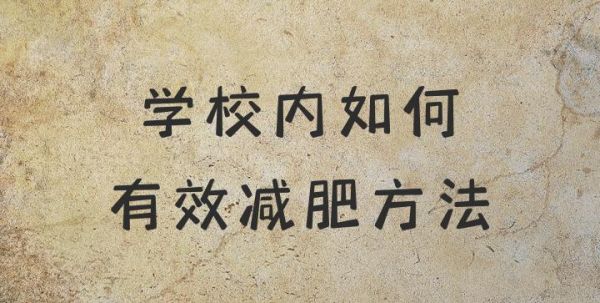 学校内如何
有效减肥方法